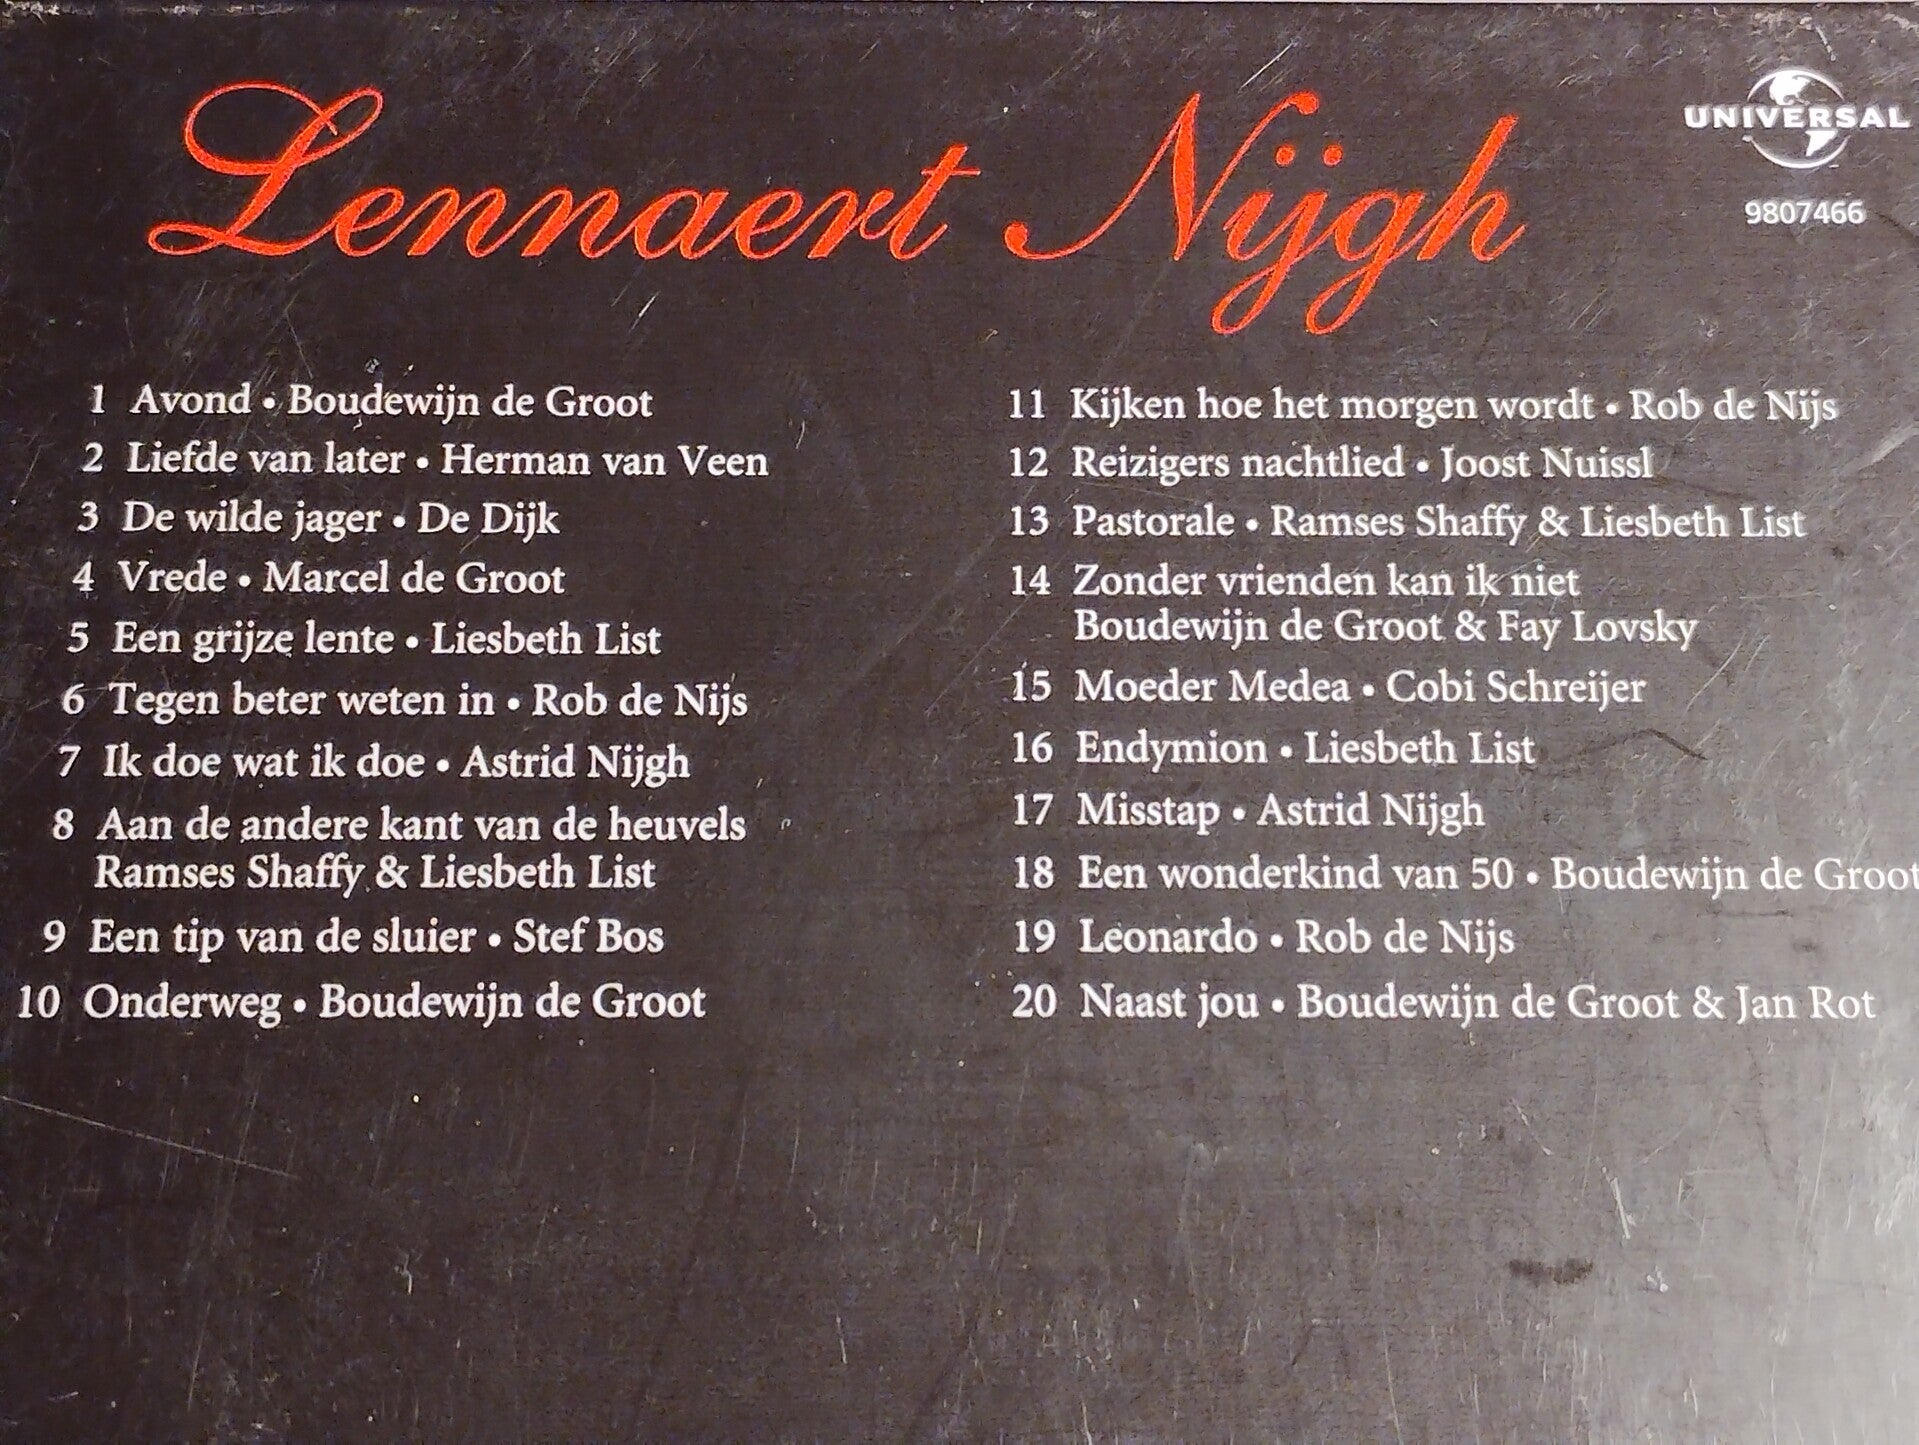 Lennaert Nijgh
UNIVERSAL
9807466
1 Avond • Boudewijn de Groot
2 Liefde van later • Herman van Veen
3 De wilde jager • De Dijk
4 Vrede • Marcel de Groot
5 Een grijze lente • Liesbeth List
6 Tegen beter weten in • Rob de Nijs
7 Ik doe wat ik doe • Astrid Nijgh
8 Aan de andere kant van de heuvels
Ramses Shaffy & Liesbeth List
9 Een tip van de sluier • Stef Bos
10 Onderweg • Boudewijn de Groot
11 Kijken hoe het morgen wordt • Rob de Nijs
12 Reizigers nachtlied • Joost Nuissl
13 Pastorale • Ramses Shaffy & Liesbeth List
14 Zonder vrienden kan ik niet
Boudewijn de Groot & Fay Lovsky
15 Moeder Medea • Cobi Schreijer
16 Endymion • Liesbeth List
17 Misstap • Astrid Nijgh
18 Een wonderkind van 50 • Boudewijn de Groot
19 Leonardo • Rob de Nijs
20 Naast jou • Boudewijn de Groot & Jan Rot